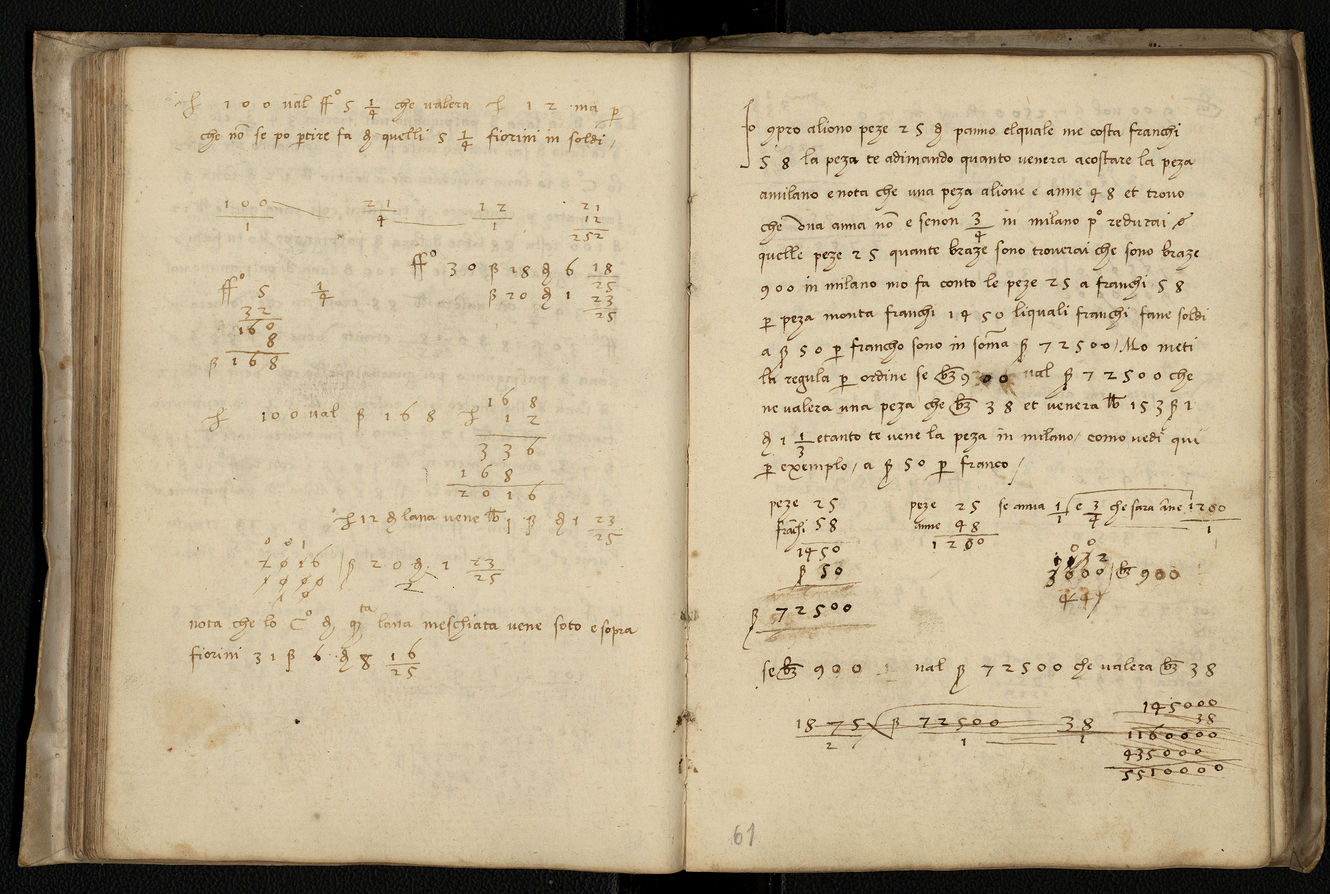 100 val ff° 5 1/4 che valera 12 ma p
che nō se po ptire fa quelli 5 1/4 fiorini in soldi
100 21 12 21
1 4 1 12
252
ff° 30 ß 18 6 18/25
ff° 5 1/4 ß 20 1 23/25
32
160
8
ß 168
100 val ß 168
168
12
336
168
2016
12 lana vene ß 1 23/25
001
2016 / ß 20 1 23/25
1000
nota che lo C° lana meschiata vene soto e sopra
fiorini 31 ß 6 8 16/25
Io 9pro aliono peze 25 panno elquale me costa franchi
58 la peza te adimando quanto venera acostare la peza
amilano e nota che una peza alione e anne 48 et trovo
che una anna nō e senon 3/4 in milano p° redurai
quelle peze 25 quante braze sono troverai che sono braze
900 in milano mo fa conto le peze 25 a franchi 58
p peza monta franchi 1450 liquali franchi fane soldi
a ß 50 p francho sono in soma ß 72500 / Mo meti
la regula p ordine se bz 900 val ß 72500 che
ne valera una peza che bz 38 et venera lb 153 ß 1
1 1/3 e tanto te vene la peza in milano / como vedi qui
p exemplo / a ß 50 p franco /
peze 25 peze 25 se anna 1/1 e 3/4 che sara āne 1200/1
frāchi 58 anne 48
1450 1200
ß 50 3600 / bz 900
444
ß 72500
se bz 900 val ß 72500 che valera bz 38
1875 ß 72500 38
2 1 1
145000
38
1160000
435000
5510000
61